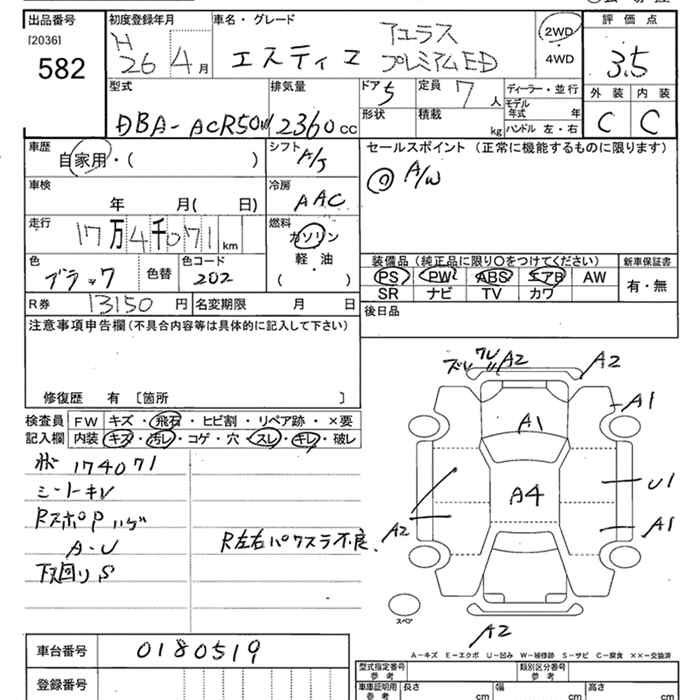 出品番号
[2036]
582
初度登録年月
H
26 4月
車名・グレード
エスティマ
アエラス
プレミアムED
2WD
4WD
評価点
3.5
外装 内装
C C
型式
DBA-ACR50W
排気量
2360cc
ドア
5
形状
定員 7人
積載
kg
ディーラー・並行
モデル年式 年
ハンドル 左・右
車歴
自家用・( )
シフト
A/T
車検
年 月( 日)
冷房
AAC
走行
17万4千071km
燃料
ガソリン
軽・油
( )
色
ブラック
色替
色コード
202
R券 13150円
名変期限 月 日
セールスポイント (正常に機能するものに限ります)
A/W
装備品 (純正品に限り○をつけてください)
PS PW ABS エアB AW
SR ナビ TV カワ
新車保証書
有・無
後日品
注意事項申告欄(不具合内容等は具体的に記入して下さい)
修復歴 有 [箇所 ]
検査員
記入欄
FW キズ・飛石・ヒビ割・リペア跡・×要
内装 キズ・汚レ・コゲ・穴・スレ・キレ・破レ
174071
A・U
下回りS
R左右パワスラ不良
A2
A2
A1
A1
A4
U1
A1
A2
A2
スペア
A-キズ E-エクボ U-凹み W-補修跡 S-サビ C-腐食 ××-交換済
車台番号 0180519
登録番号
型式指定番号
参考
類別区分番号
参考
車庫証明用
参考
長さ cm
幅 cm
高さ cm